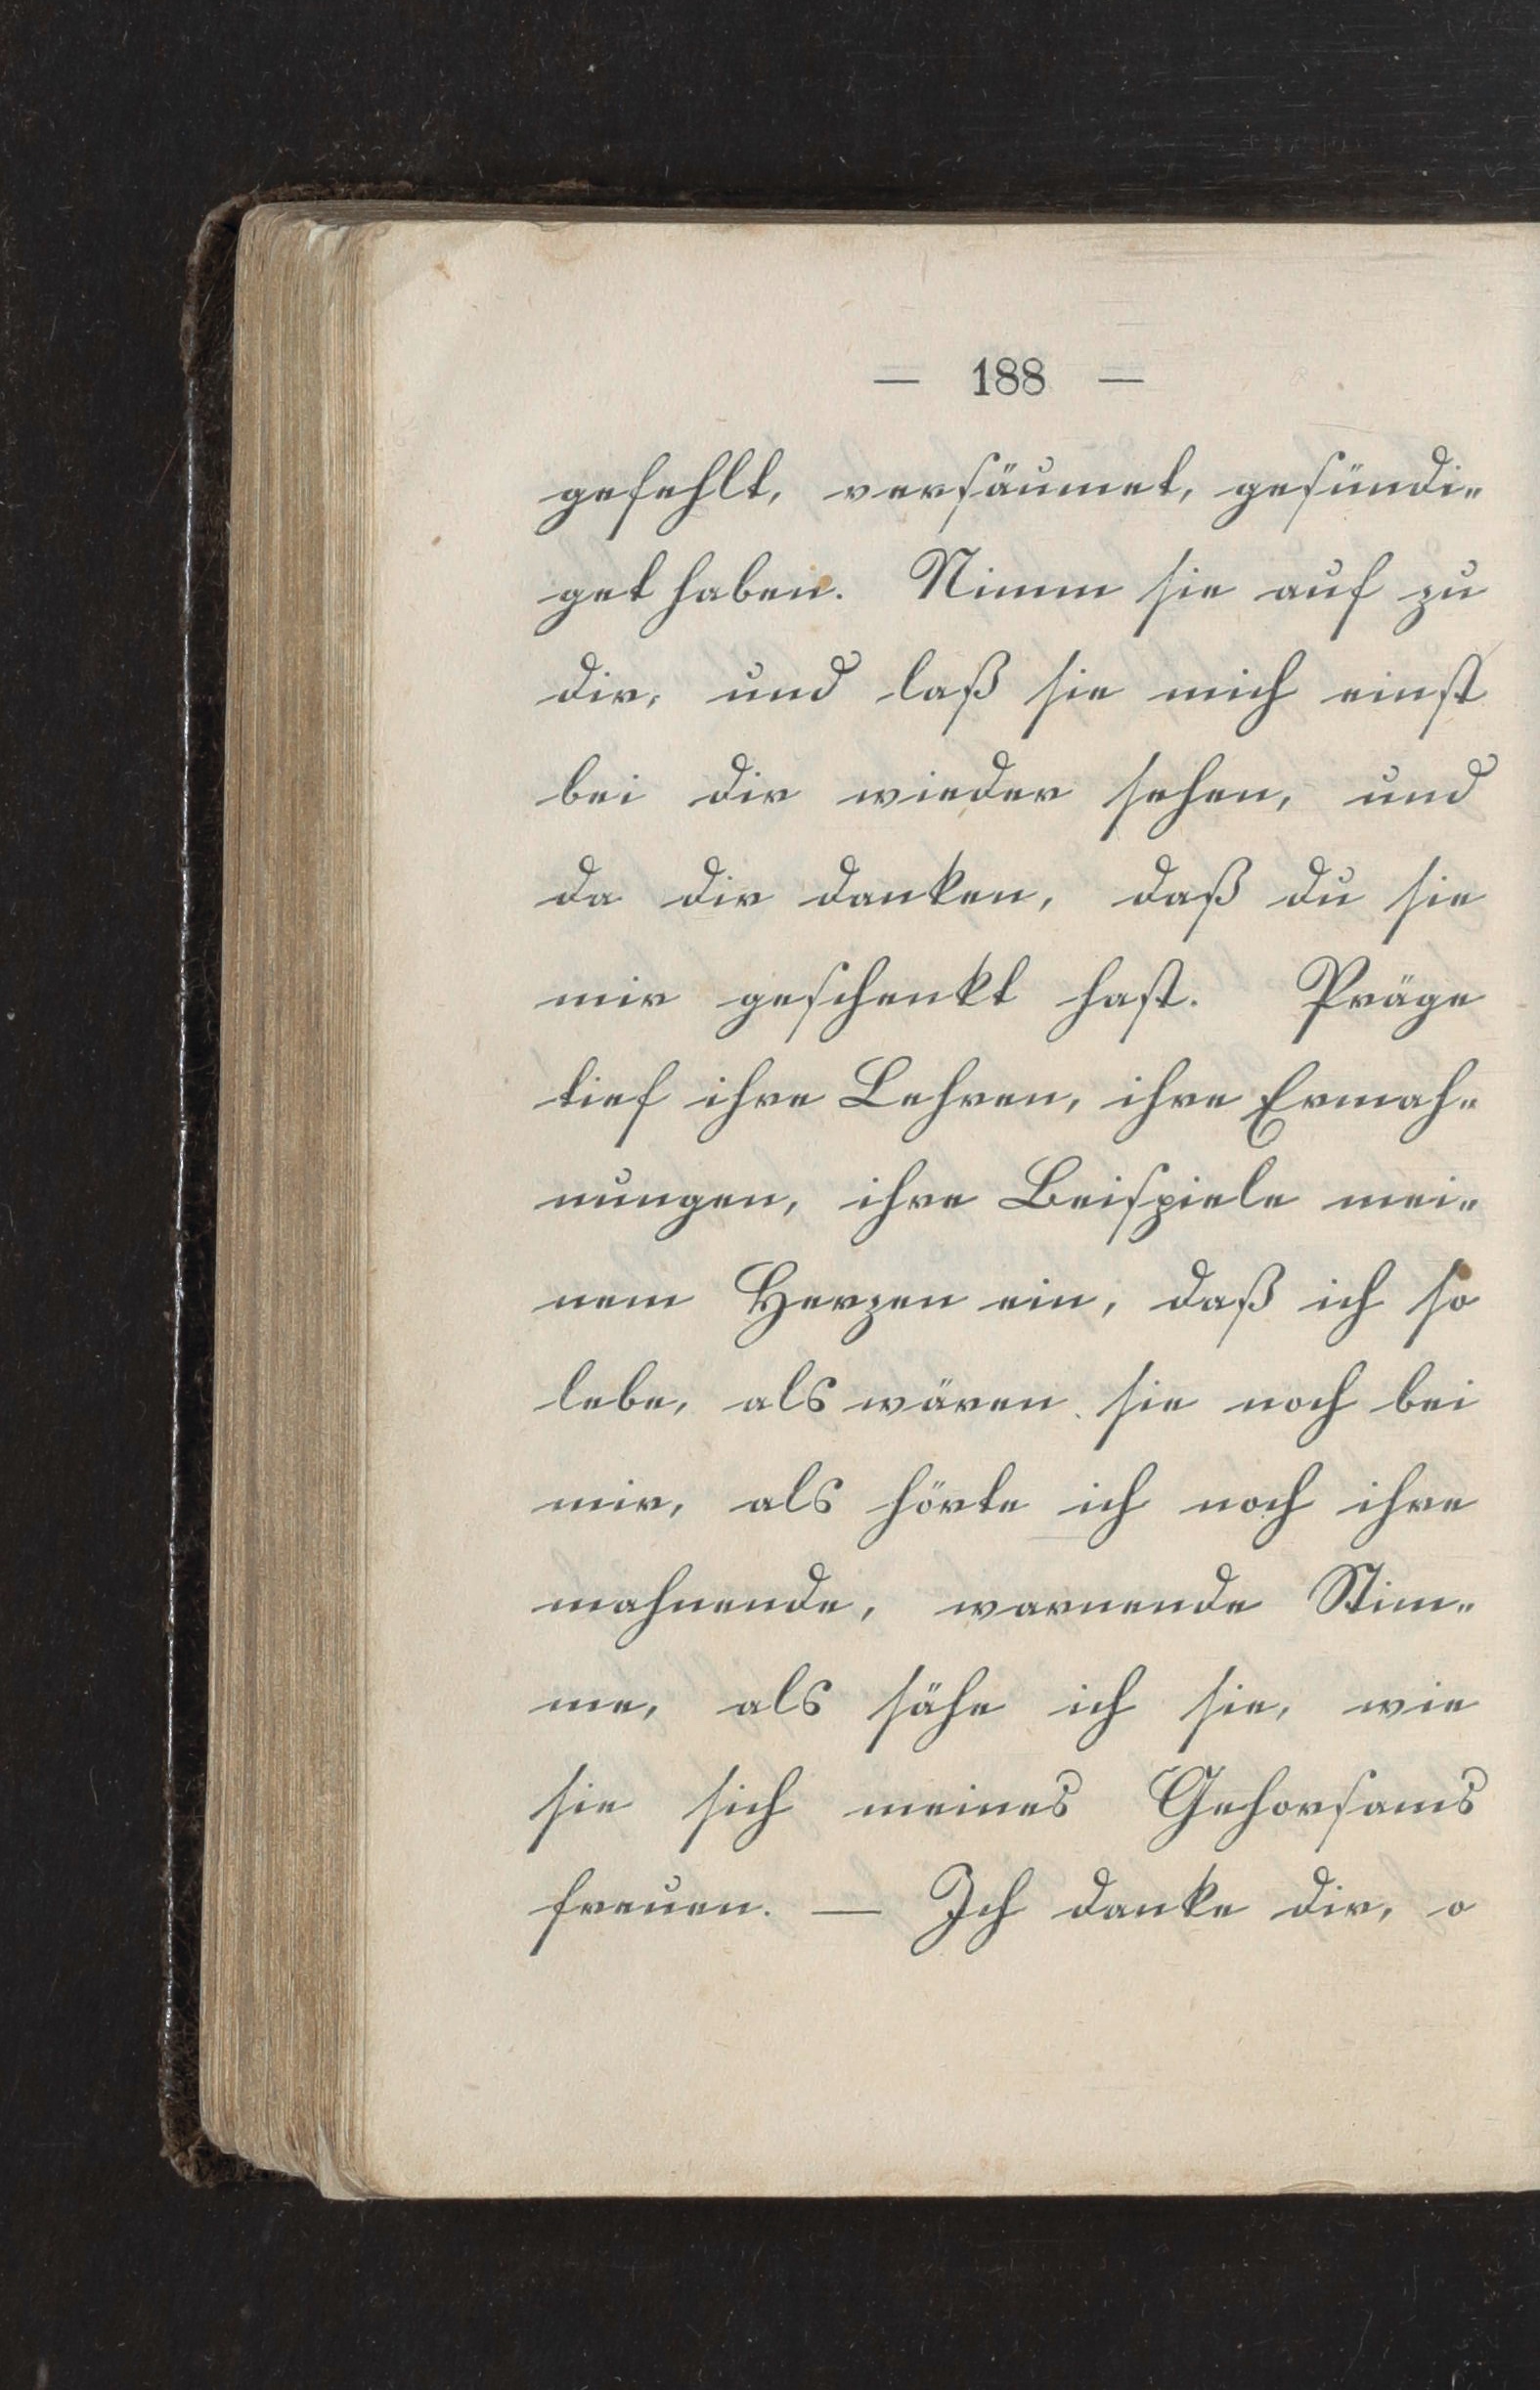 — 188 —
gefehlt, versäumet, gesündi-
get haben. Nimm sie auf zu
dir, und laß sie mich einst
bei dir wieder sehen, und
da dir danken, daß du sie
mir geschenkt hast. Präge
tief ihre Lehren, ihre Ermah-
nungen, ihre Beispiele mei-
nem Herzen ein, daß ich so
lebe, als wären sie noch bei
mir, als hörte ich noch ihre
mahnende, warnende Stim-
me, als sähe ich sie, wie
sie sich meines Gehorsams
freuen. — Ich danke dir, o